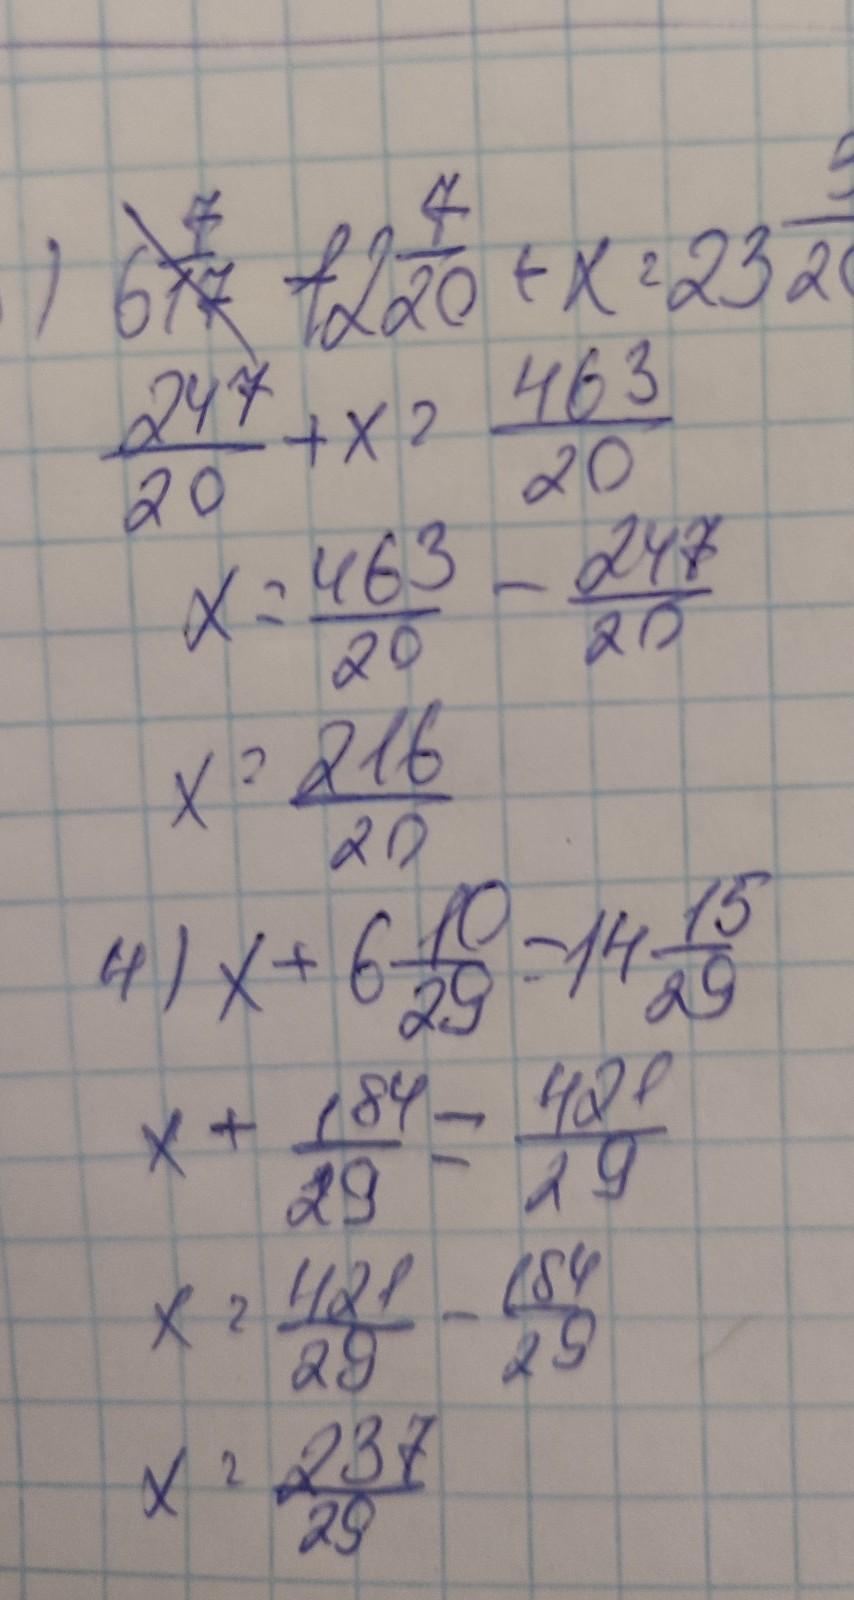 ) 6 7/17 12 7/20 + x = 23 3/20
247/20 + x = 463/20
x = 463/20 - 247/20
x = 216/20
4) x + 6 10/29 = 14 15/29
x + 184/29 = 421/29
x = 421/29 - 184/29
x = 237/29